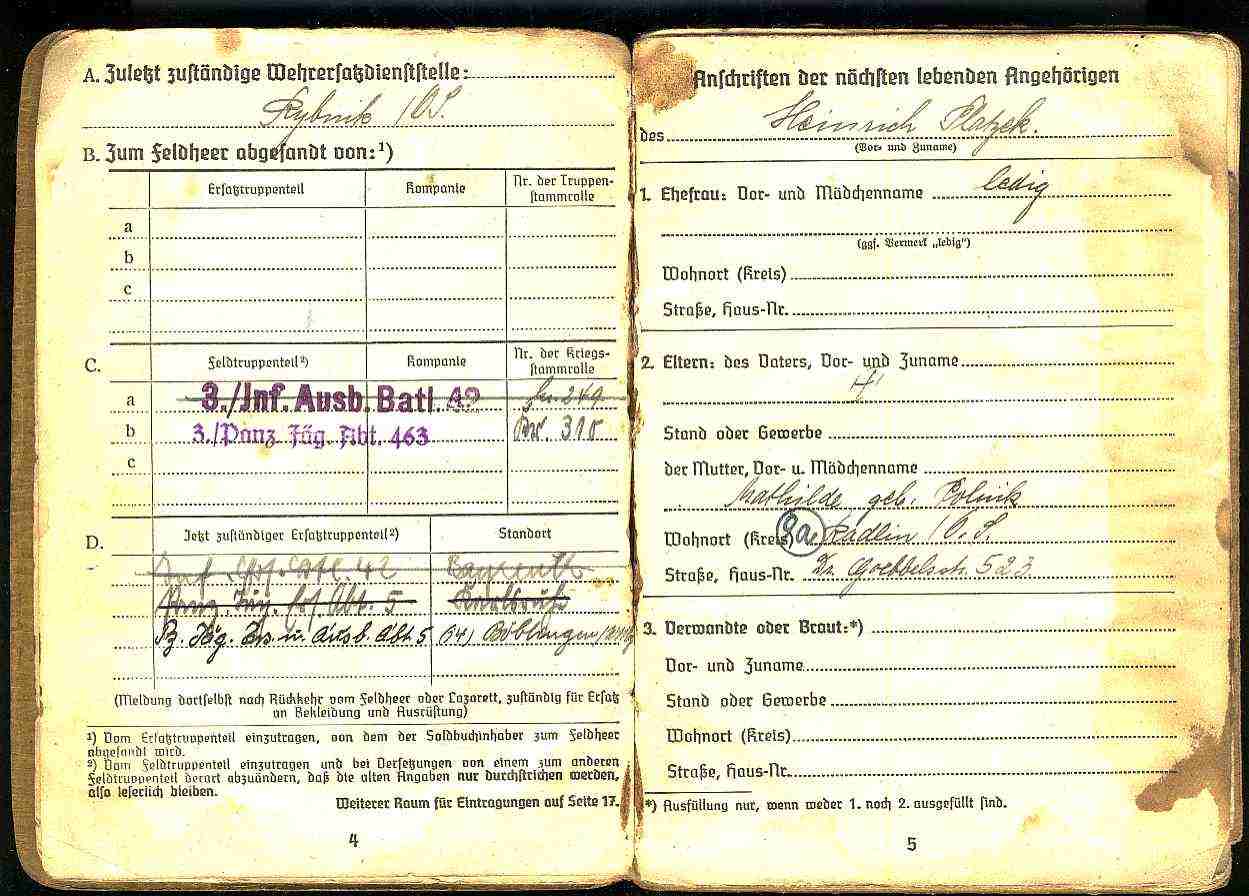 A. Zuletzt zuständige Wehrersatzdienststelle:
Rybnik /O.S.
B. Zum Feldheer abgesandt von:¹)
Ersatztruppenteil Kompanie Nr. der Truppen-
stammrolle
a
b
c
C. Feldtruppenteil²) Kompanie Nr. der Kriegs-
stammrolle
a 3./Inf. Ausb. Batl. 42 249
b 3./Panz. Jäg. Abt. 463 Br. 310
c
D. Jetzt zuständiger Ersatztruppenteil²) Standort
Inf. Ers. Btl. 42 Bayreuth
Panz. Jäg. Ers. Abt. 5 Karlsruhe
Pz. Jäg. Ers. u. Ausb. Abt. 5 (14) Böblingen
(Meldung dortselbst nach Rückkehr vom Feldheer oder Lazarett, zuständig für Ersatz
an Bekleidung und Ausrüstung)
¹) Vom Ersatztruppenteil einzutragen, von dem der Soldbuchinhaber zum Feldheer
abgesandt wird.
²) Vom Feldtruppenteil einzutragen und bei Versetzungen von einem zum anderen
Feldtruppenteil derart abzuändern, daß die alten Angaben nur durchstrichen werden,
also leserlich bleiben.
Weiterer Raum für Eintragungen auf Seite 17.
4
Anschriften der nächsten lebenden Angehörigen
des Heinrich Platzek.
(Vor- und Zuname)
1. Ehefrau: Vor- und Mädchenname ledig
(ggf. Vermerk „ledig")
Wohnort (Kreis)
Straße, Haus-Nr.
2. Eltern: des Vaters, Vor- und Zuname
Stand oder Gewerbe
der Mutter, Vor- u. Mädchenname
Mathilde, geb. Polnik
Wohnort (Kreis) 8a Radlin /O.S.
Straße, Haus-Nr. Dr. Goebbelsstr. 523
3. Verwandte oder Braut:*)
Vor- und Zuname
Stand oder Gewerbe
Wohnort (Kreis)
Straße, Haus-Nr.
*) Ausfüllung nur, wenn weder 1. noch 2. ausgefüllt sind.
5